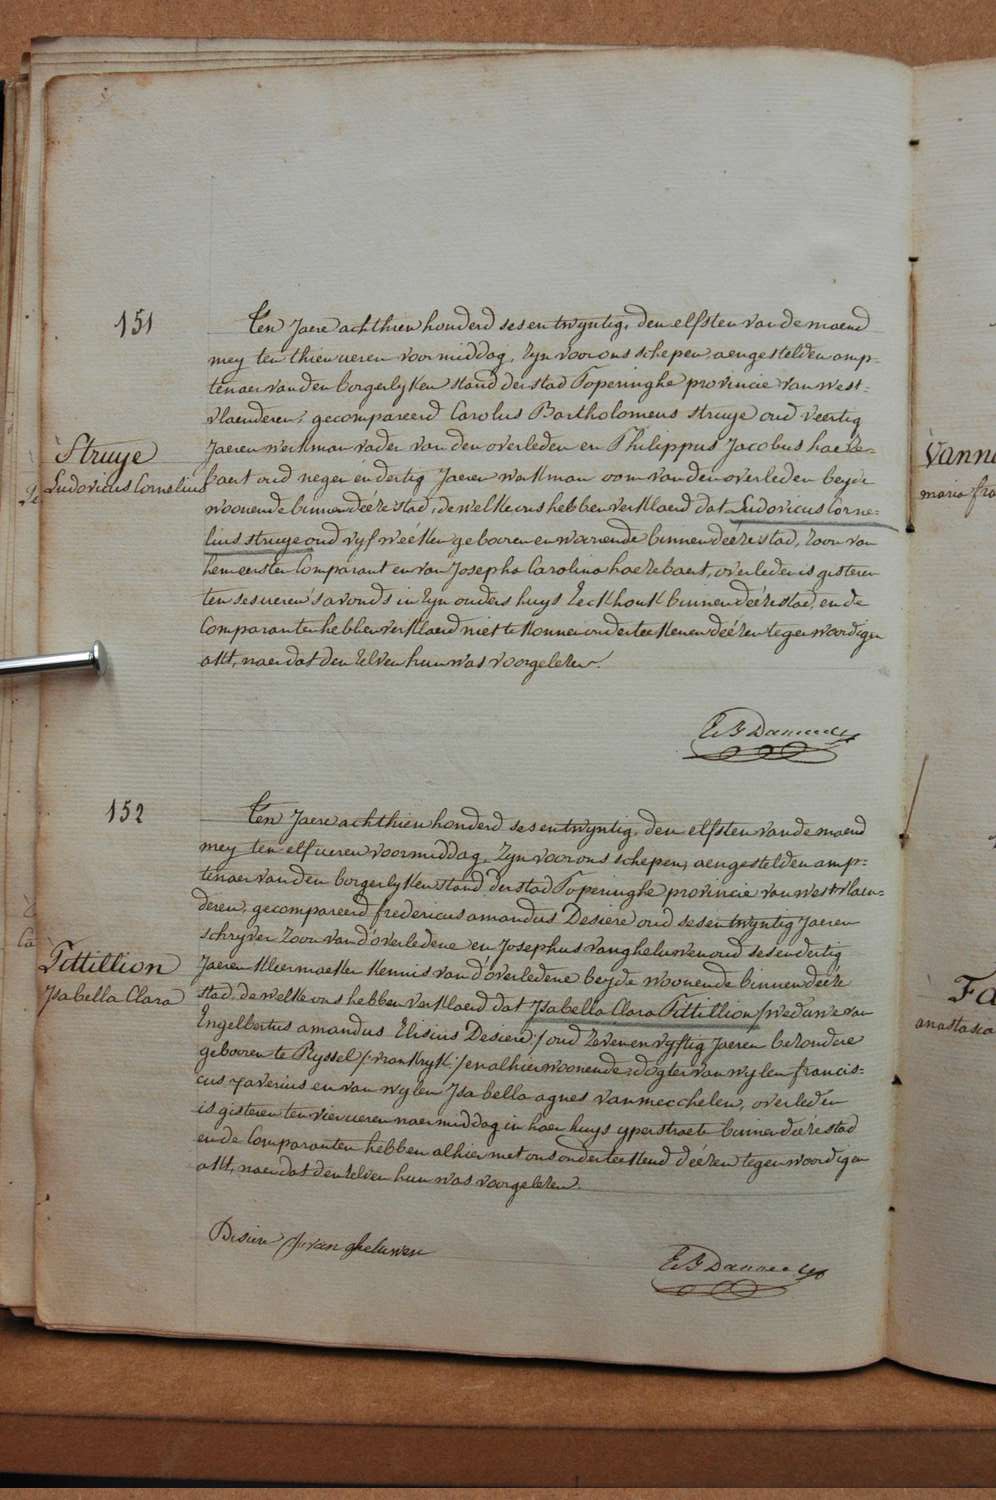 151
Ten Jaere achthien honderd sesentwyntig, den elfsten van de maend
mey ten thien ueren voormiddag, Zyn voor ons schepen, aengestelden amp-
tenaer van den borgerlyken stand der stad Poperinghe provincie van west-
vlaenderen, gecompareerd Carolus Bartholomeus Struye oud veertig
Struye
Ludovicus Cornelius
Jaeren werkman vader van den overleden en Philippus Jacobus haeze-
baert oud negen en dertig Jaeren werkman oom van den overleden beyde
woonende binnen deéze stad, de welke ons hebben verklaerd dat Ludovicus Corne-
lius Struye oud vyf weéken gebooren en woonende binnen deéze stad, Zoon van
hem eersten Comparant en van Josepha Carolina haezebaert, overleden is gisteren
ten ses ueren 's avonds in Zyn ouders huys Eeckhoutk binnen deéze stad, en de
Comparanten hebben verklaerd niet te konnen onderteekenen deézen tegenwoordigen
akt, naer dat den zelven hun was voorgelezen.
152
Ten Jaere achthien honderd sesentwyntig, den elfsten van de maend
mey ten elf ueren voormiddag, Zyn voor ons schepen, aengestelden amp-
tenaer van den borgerlyken stand der stad Poperinghe provincie van west vlaen-
deren, gecompareerd fredericus amandus Desiere oud sesentwyntig Jaeren
schryver Zoon van d'overledene en Josephus vangheluwen oud sesendertig
Tittillion
Isabella Clara
Jaeren kleermaeker kennis van d'overledene beyde woonende binnen deéze
stad, de welke ons hebben verklaerd dat Isabella Clara Tittillion /: weduwe van
Engelbertus amandus Elisius Desiere :/ oud Zevenenvyftig Jaeren bezondere
gebooren te Ryssel /: vrankryk :/ en alhier woonende, dogter van wylen francis-
cus xaverius en van wylen Isabella agnes vanmecchelen, overleden
is gisteren ten vier ueren naermiddag in haer huys yperstraete binnen deéze stad
en de Comparanten hebben alhier met ons onderteekend deézen tegenwoordigen
akt, naer dat den zelven hun was voorgelezen.
Desiere J. vangheluwen
Vanne
maria fra
Fa
anastasia